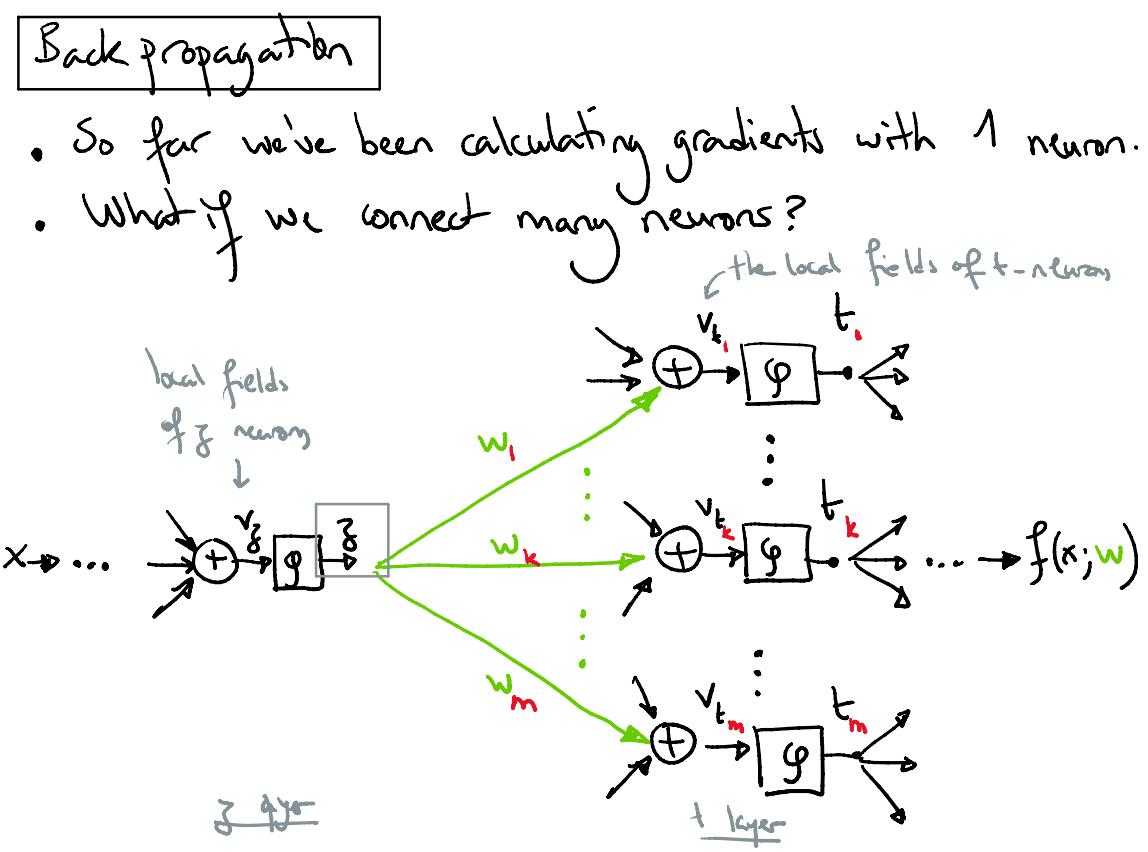 Back propagation
• So far we've been calculating gradients with 1 neuron.
• What if we connect many neurons?
the local fields of t-neurons
v_{t_1}
t_1
φ
local fields
of z neurons
w_1
v_z
z
φ
x → ...
w_k
v_{t_k}
t_k
φ
... → f(x; w)
w_m
v_{t_m}
t_m
φ
z layer
t layer